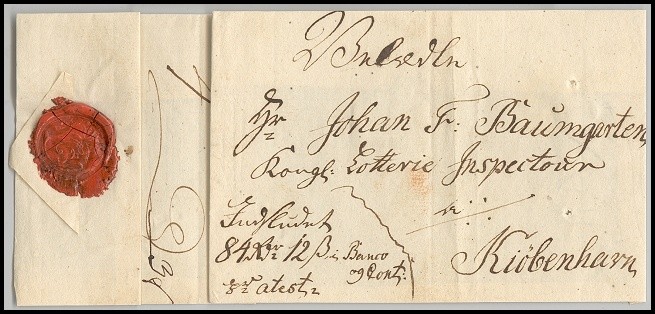 Velædle
Hr Johan F: Baumgarten
Kongl: Lotterie Inspecteur
a
Kiöbenhavn
Indsluttet
84 Rdr 12 ß i Banco
og Cont:
atest